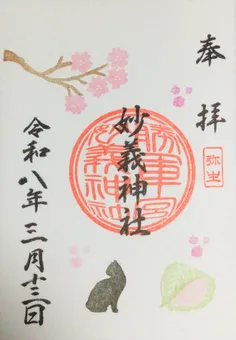 奉拝
弥生
妙義神社
令和八年三月十三日